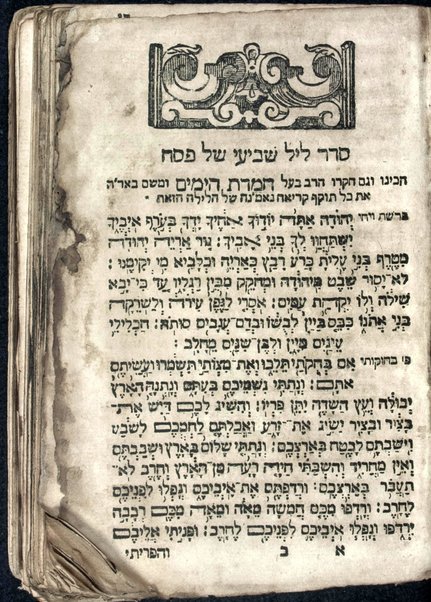 סדר ליל שביעי של פסח
הכינו וגם חקרו הרב בעל חמדת הימים ומשם באר״ה
את כל תוקף קריאה נאמנה של הלילה הזאת
פרשת ויחי יְהוּדָה אַתָּה יוֹדוּךָ אַחֶיךָ יָדְךָ בְּעֹרֶף אֹיְבֶיךָ
יִשְׁתַּחֲווּ לְךָ בְּנֵי אָבִיךָ: גּוּר אַרְיֵה יְהוּדָה
מִטֶּרֶף בְּנִי עָלִיתָ כָּרַע רָבַץ כְּאַרְיֵה וּכְלָבִיא מִי יְקִימֶנּוּ:
לֹא יָסוּר שֵׁבֶט מִיהוּדָה וּמְחֹקֵק מִבֵּין רַגְלָיו עַד כִּי יָבֹא
שִׁילֹה וְלוֹ יִקְּהַת עַמִּים: אֹסְרִי לַגֶּפֶן עִירֹה וְלַשֹּׂרֵקָה
בְּנִי אֲתֹנוֹ כִּבֵּס בַּיַּיִן לְבֻשׁוֹ וּבְדַם עֲנָבִים סוּתֹה: חַכְלִילִי
עֵינַיִם מִיָּיִן וּלְבֶן שִׁנַּיִם מֵחָלָב:
פ׳ בחוקותי אִם בְּחֻקֹּתַי תֵּלֵכוּ וְאֶת מִצְוֹתַי תִּשְׁמְרוּ וַעֲשִׂיתֶם
אֹתָם: וְנָתַתִּי גִשְׁמֵיכֶם בְּעִתָּם וְנָתְנָה הָאָרֶץ
יְבוּלָהּ וְעֵץ הַשָּׂדֶה יִתֵּן פִּרְיוֹ: וְהִשִּׂיג לָכֶם דַּיִשׁ אֶת־
בָּצִיר וּבָצִיר יַשִּׂיג אֶת־זָרַע וַאֲכַלְתֶּם לַחְמְכֶם לָשֹׂבַע
וִישַׁבְתֶּם לָבֶטַח בְּאַרְצְכֶם: וְנָתַתִּי שָׁלוֹם בָּאָרֶץ וּשְׁכַבְתֶּם
וְאֵין מַחֲרִיד וְהִשְׁבַּתִּי חַיָּה רָעָה מִן הָאָרֶץ וְחֶרֶב לֹא־
תַעֲבֹר בְּאַרְצְכֶם: וּרְדַפְתֶּם אֶת־אֹיְבֵיכֶם וְנָפְלוּ לִפְנֵיכֶם
לֶחָרֶב: וְרָדְפוּ מִכֶּם חֲמִשָּׁה מֵאָה וּמֵאָה מִכֶּם רְבָבָה
יִרְדֹּפוּ וְנָפְלוּ אֹיְבֵיכֶם לִפְנֵיכֶם לֶחָרֶב: וּפָנִיתִי אֲלֵיכֶם
א ב והפריתי